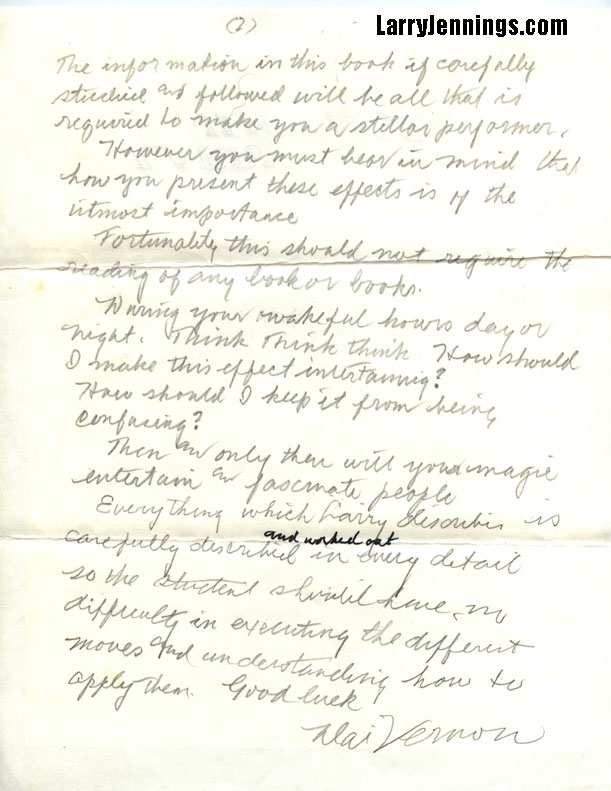 LarryJennings.com
(2)
The information in this book if carefully
studied and followed will be all that is
required to make you a stellar performer.
However you must bear in mind that
how you present these effects is of the
utmost importance
Fortunatly this should not require the
reading of any book or books.
During your wakeful hours day or
night. Think Think think How should
I make this effect intertainnig?
How should I keep it from being
confusing?
Then an only then will your magic
entertain an fascinate people
Everything which Larry describes is
carefully described and worked out in every detail
so the student should have no
difficulty in executing the different
moves and understanding how to
apply them. Good luck
Dai Vernon